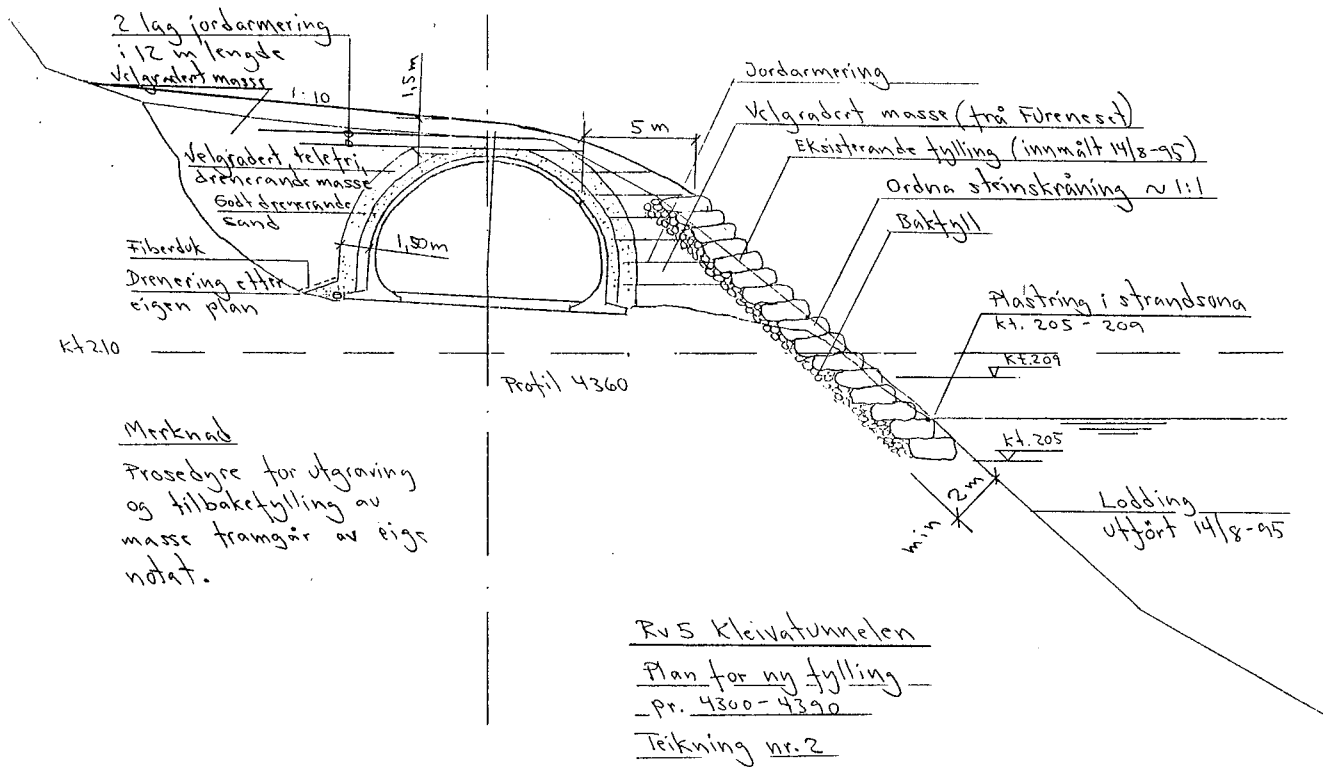 2 lag jordarmering
i 12 m lengde
Velgradert masse
1:10
1,5m
Velgradert, telefri,
drenerande masse
Godt drenerande
sand
1,50m
Fiberduk
Drenering etter
eigen plan
5 m
Jordarmering
Velgradert masse (frå Fureneset)
Eksisterande fylling (innmålt 14/8-95)
Ordna steinskråning ~ 1:1
Bakfyll
Plastring i strandsona
kt. 205 - 209
kt.209
kt.205
kt 210
Profil 4360
min 2m
Lodding
utført 14/8-95
Merknad
Prosedyre for utgraving
og tilbakefylling av
masse framgår av eige
notat.
Rv 5 Kleivatunnelen
Plan for ny fylling
pr. 4300-4390
Teikning nr. 2